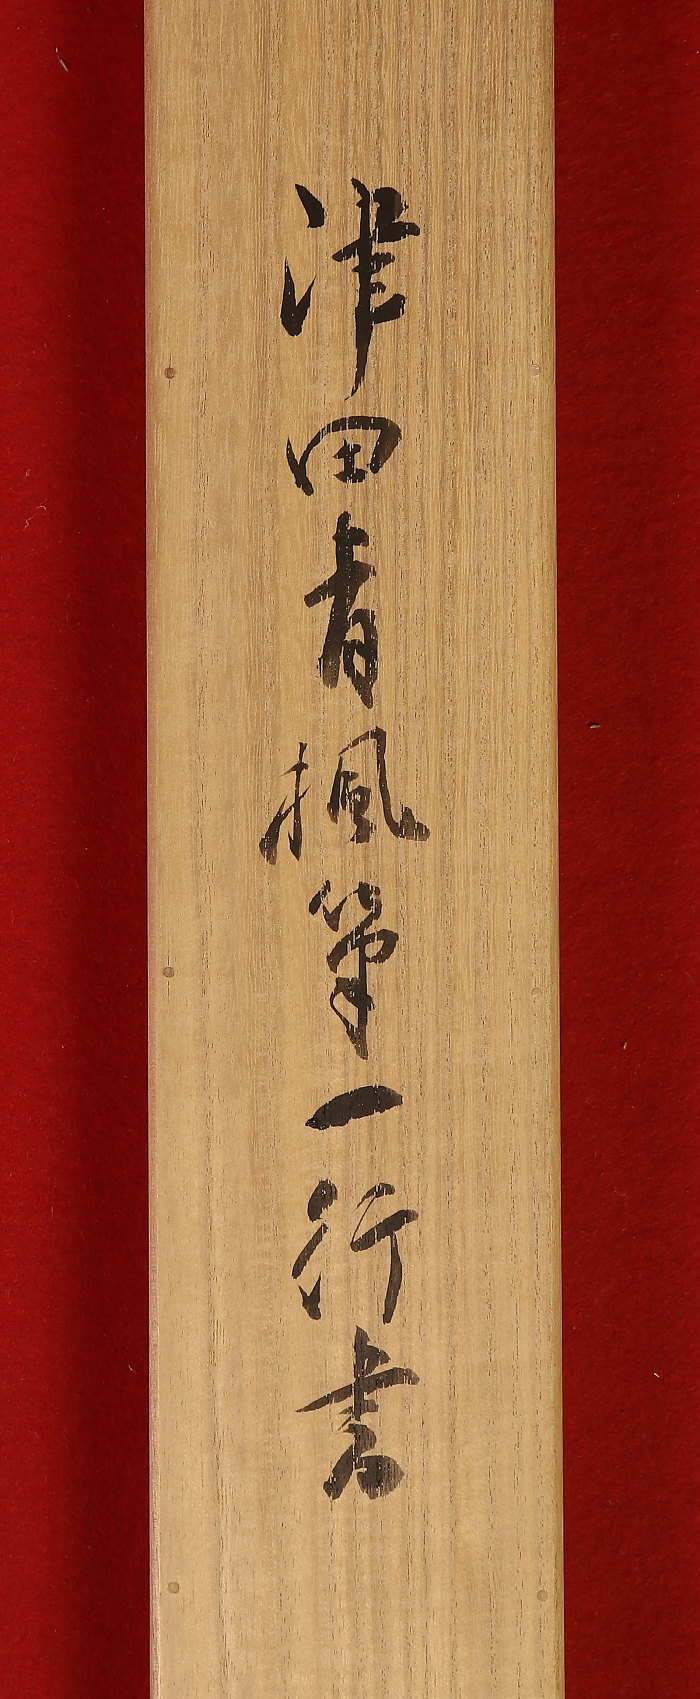 津田青楓筆一行書